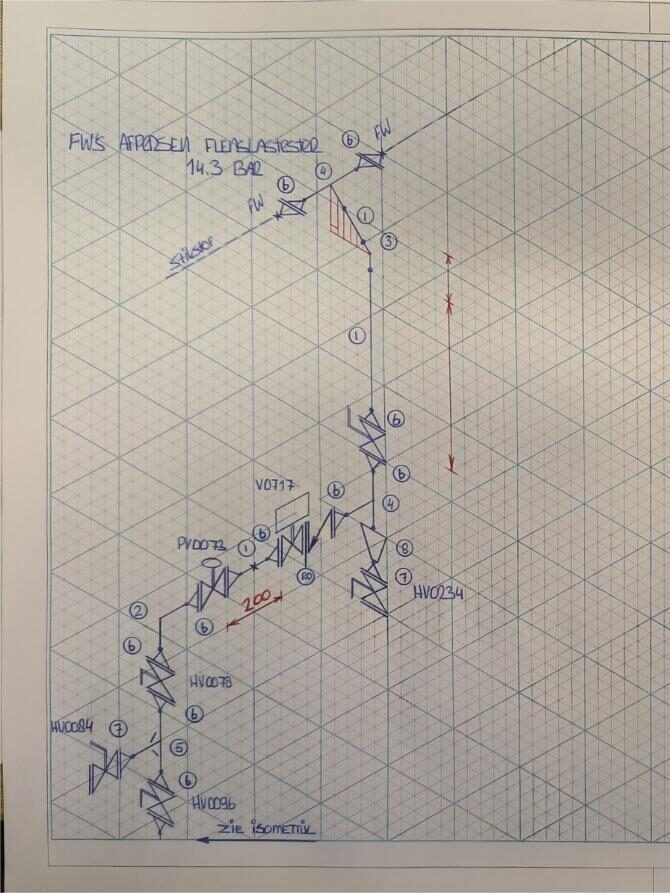 FW'S AFPERSEN FLENSLASTESTER
14.3 BAR
6
FW
4
6
FW
1
3
STIKSTOF
1
6
6
V0717
6
4
6
PV0073
1
8
RO
7
HV0234
200
2
6
6
HV0078
6
HV0084
7
5
6
HV0096
ZIE ISOMETRIK